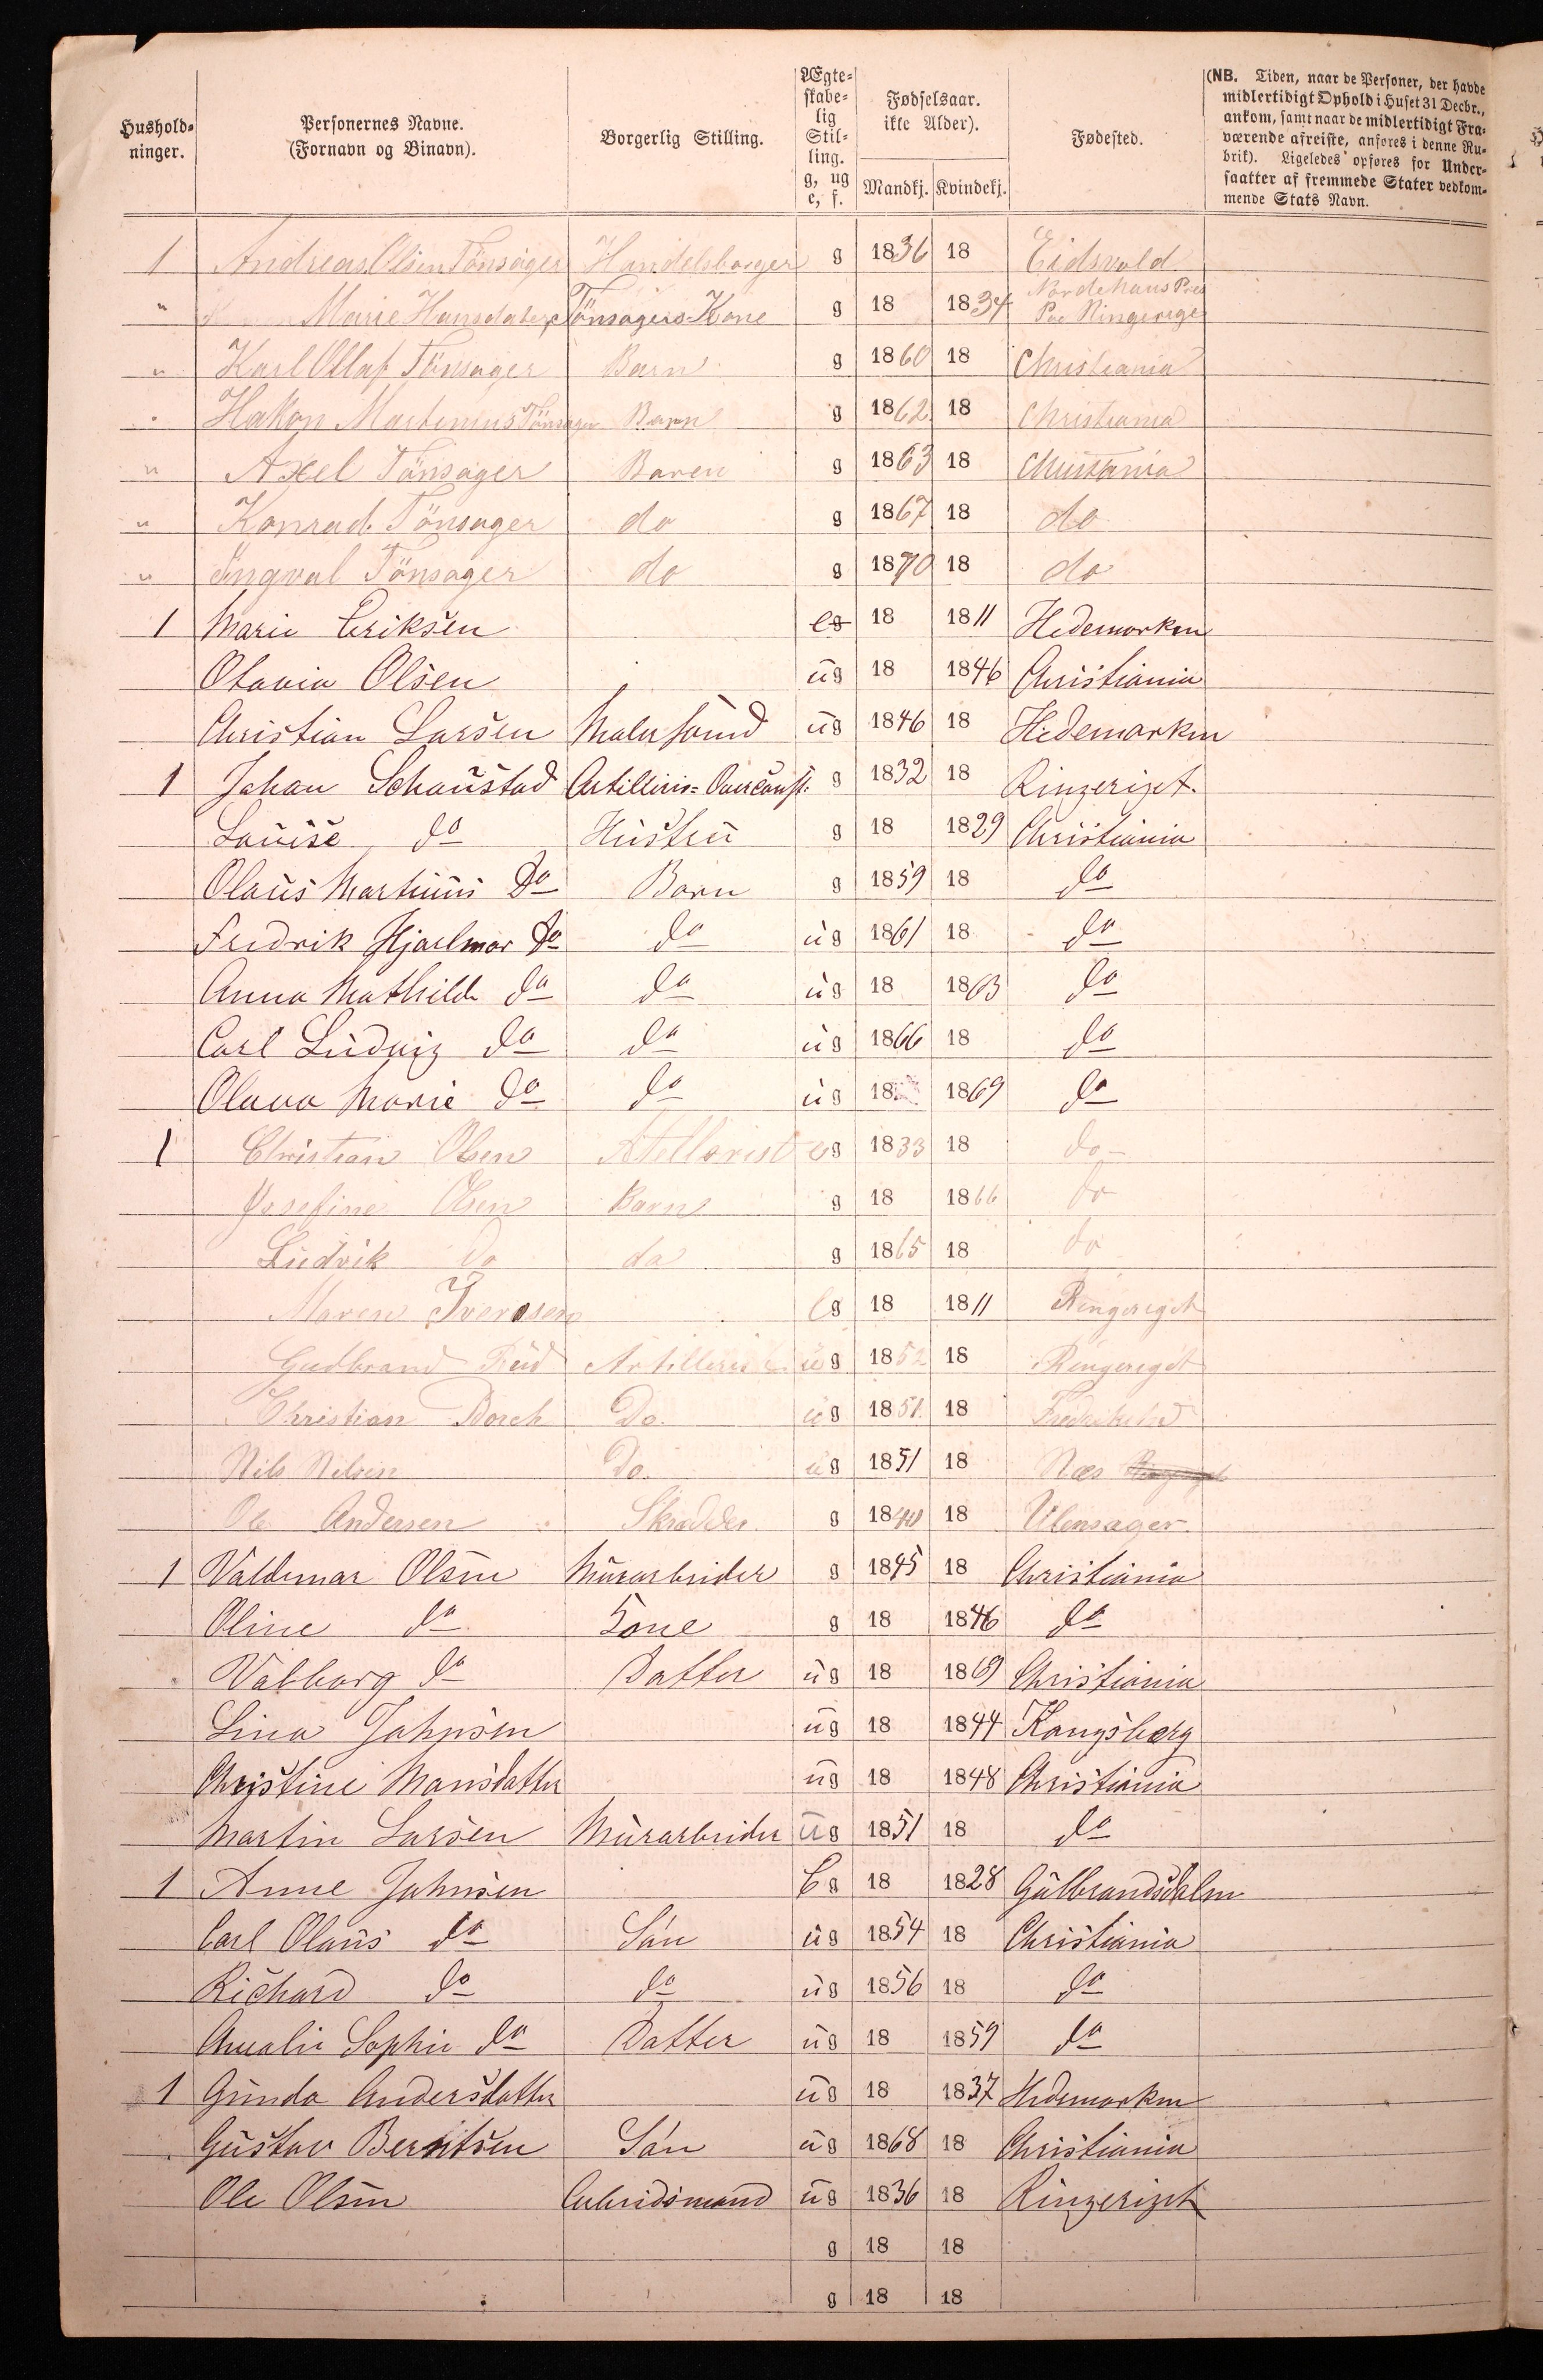 Hushold-
ninger.
Personernes Navne.
(Fornavn og Binavn).
Borgerlig Stilling.
Ægte-
skabe-
lig
Stil-
ling.
g, ug
e, f.
Fødselsaar.
ikke Alder).
Mandkj. Kvindekj.
Fødested.
(NB. Tiden, naar de Personer, der havde
midlertidigt Ophold i Huset 31 Decbr.,
ankom, samt naar de midlertidigt Fra-
værende afreiste, anføres i denne Ru-
brik). Ligeledes opføres for Under-
saatter af fremmede Stater vedkom-
mende Stats Navn.
1 Andreas Olsen Tönsager Handelsborger g 1836 18 Eidsvold
" Marie Hansdater Tönsagers Kone g 18 1834 Nordehaus Pres Paa Ringerige
" Karl Ollaf Tönsager Barn g 1860 18 Christiania
" Hakon Martinius Tönsager Barn g 1862 18 Christiania
" Axel Tönsager Baren g 1863 18 Christania
" Konrad Tönsager do g 1867 18 do
" Ingval Tönsager do g 1870 18 do
1 Marie Eriksen e g 18 1811 Hedemarken
Otavia Olsen ug 18 1846 Christiania
Christian Larsen Malersvend ug 1846 18 Hedemarken
1 Johan Schaustad Artilleri= g 1832 18 Ringeriget.
Louise do Hustru g 18 1829 Christiania
Olaus Martinius Do Barn g 1859 18 do
Fredrik Hjaelmar do do ug 1861 18 do
Anna Mathilde do do ug 18 1863 do
Carl Ludvig do do ug 1866 18 do
Olava Marie do do ug 18 1869 do
1 Christian Olsen Atellerist eg 1833 18 do
Josefine Olsen Barn g 18 1866 do
Ludvik Do do g 1865 18 do
Maren Iversen Eg 18 1811 Ringeriget
Gudbrand Rud Artillerist ug 1852 18 Ringeriget
Christian Borch Do. ug 1851 18 Fredrikstad
Nils Nilsen Do. ug 1851 18 Næs
Ole Andersen Skredder g 1840 18 Ulensager
1 Valdemar Olsen Murarbeider g 1845 18 Christiania
Oline do Kone g 18 1846 do
Valborg do Datter ug 18 1869 Christiania
Lina Johnsen ug 18 1844 Kongsberg
Christine Mansdatter ug 18 1848 Christiania
Martin Larsen Murarbeider ug 1851 18 do
1 Anne Johnsen E g 18 1828 Gulbrandsdalen
Carl Olaus do Sön ug 1854 18 Christiania
Richard do do ug 1856 18 do
Amalie Sophie do Datter ug 18 1859 do
1 Gunda Andersdatter ug 18 1837 Hedemarken
Gustav Berntsen Sön ug 1868 18 Christiania
Ole Olsen Arbeidsmand ug 1836 18 Ringeriget
g 18 18
g 18 18